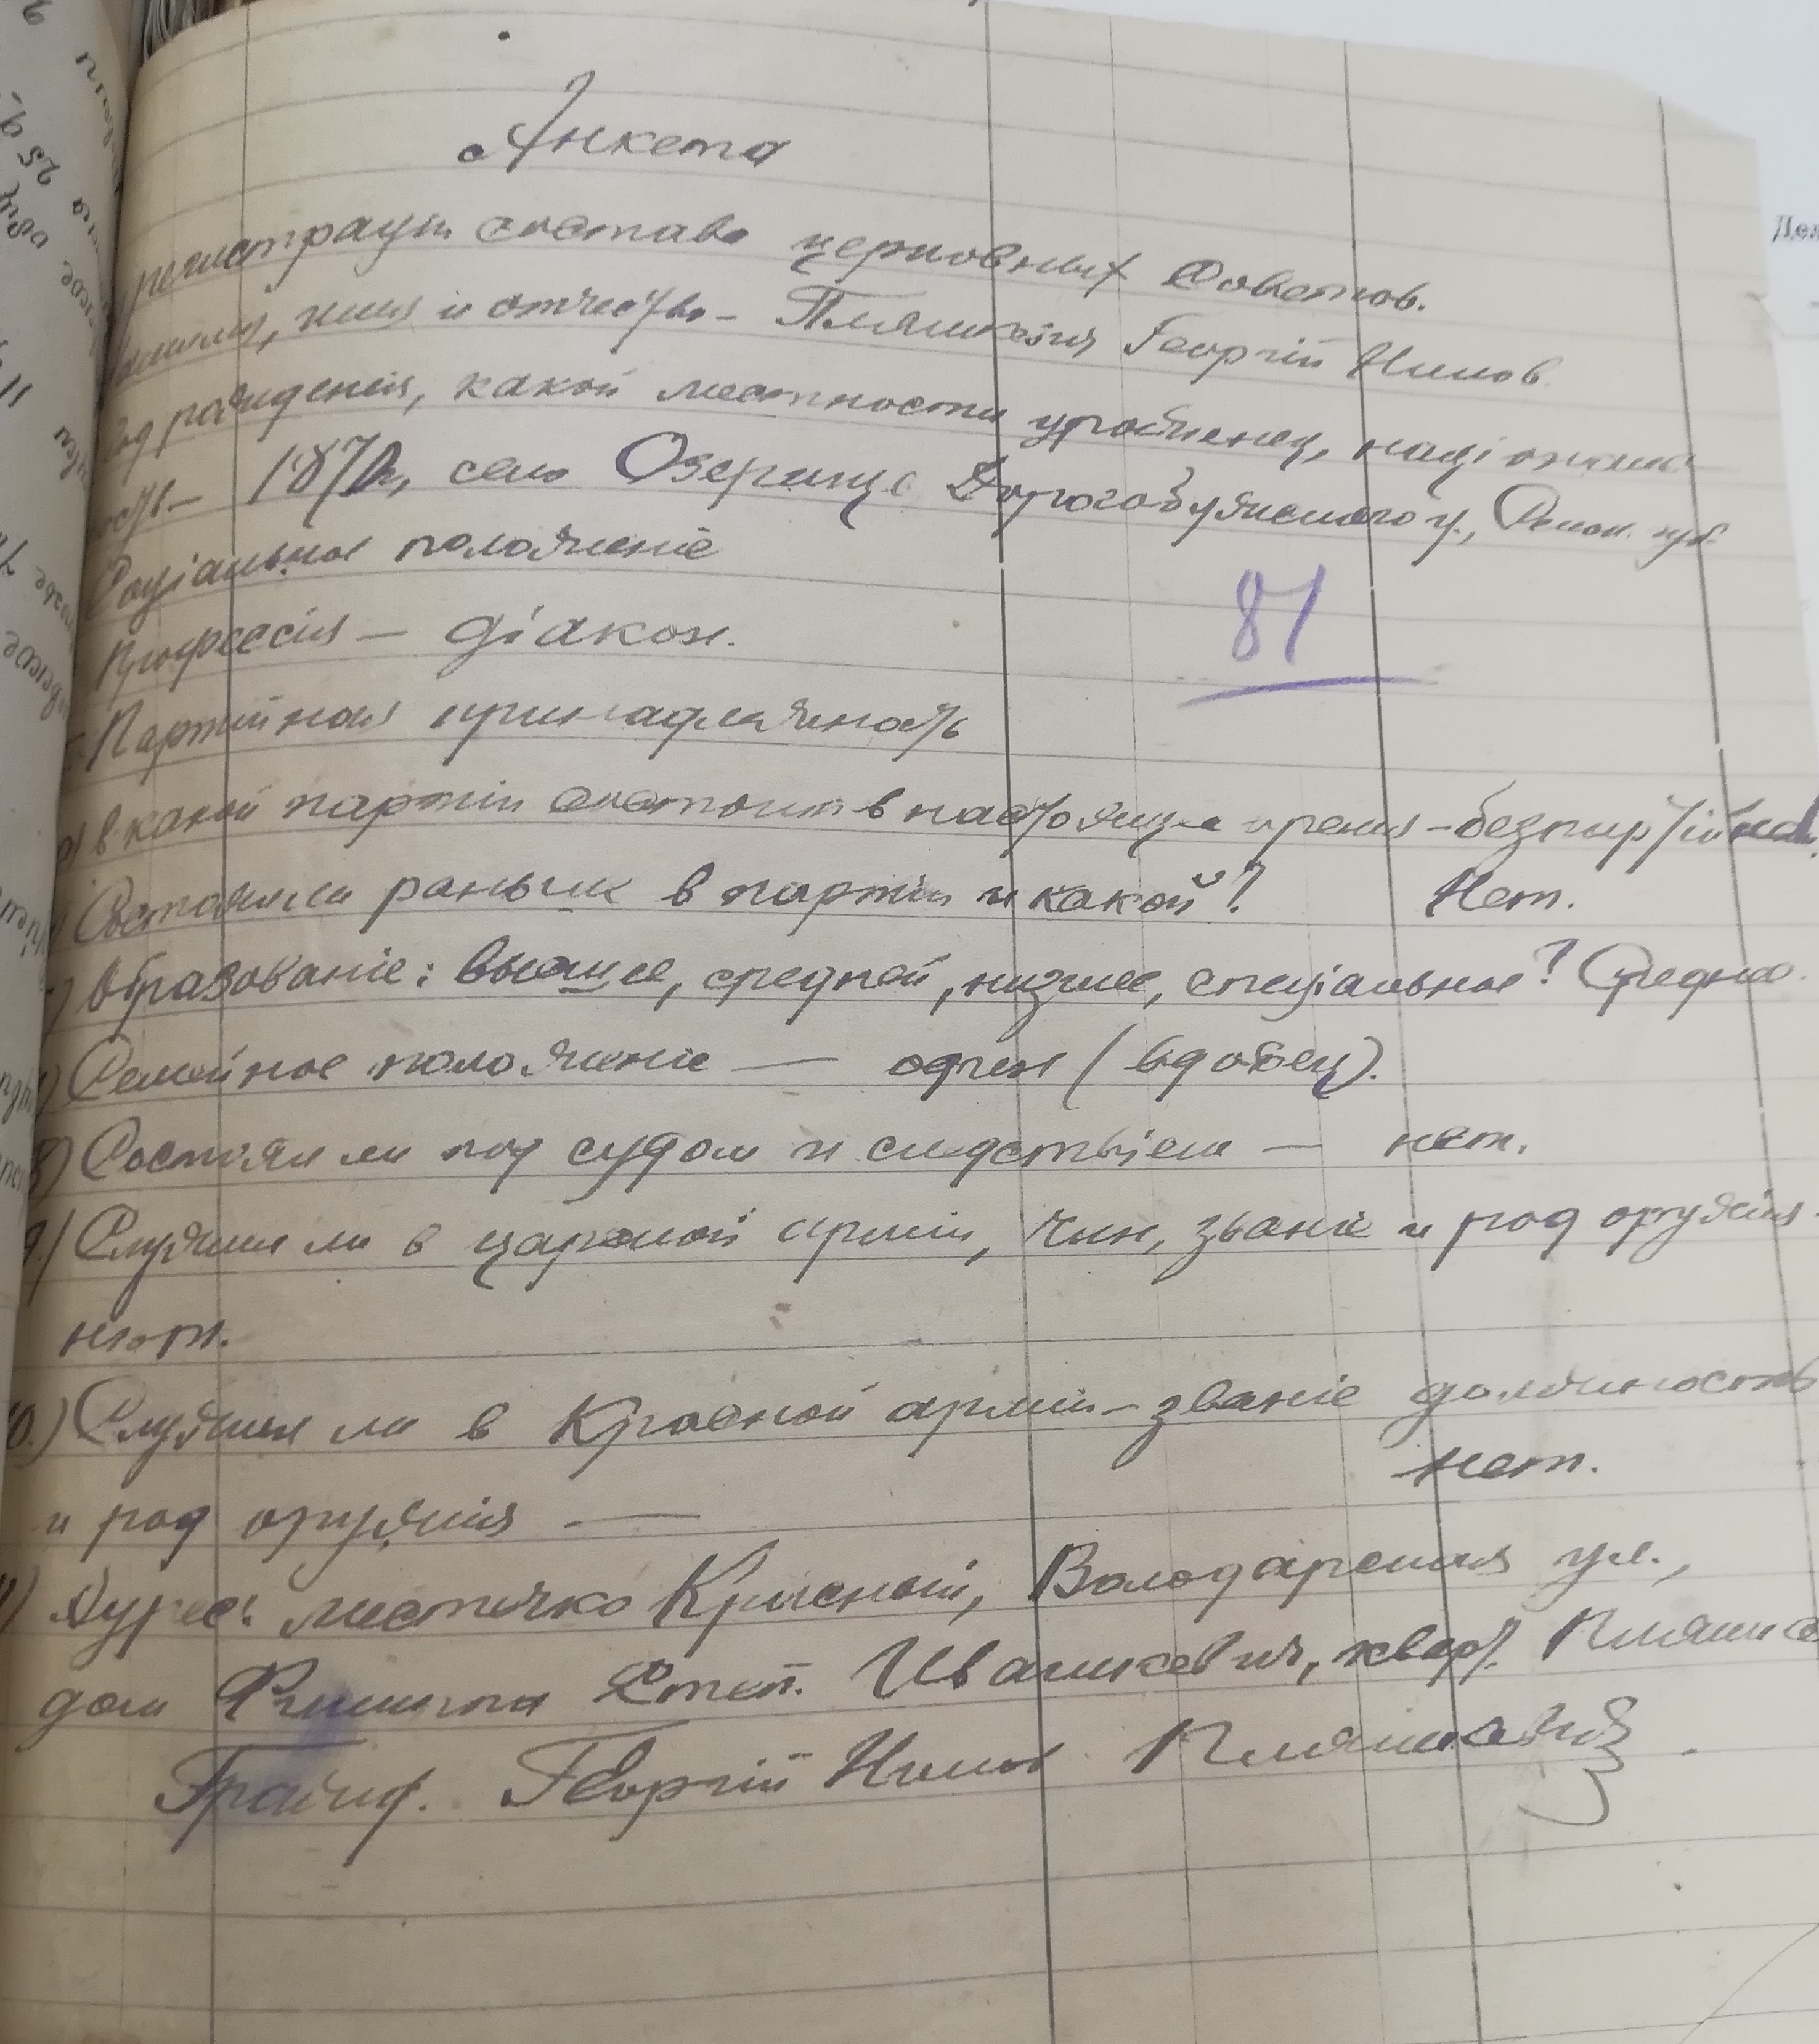 Анкета
регистраціи состава церковных советов.
фамилія, имя и отчество - Пляшкевич Георгій Нилов
Год рожденія, какой местности уроженец, націоналъ
ность - село Озерище Дорогобужского у., Смол. губ.
Соціальное положеніе
81
Профессія - діакон.
Партійная принадлежность
а) в какой партіи состоит в настоящее время - безпартійный.
Состоял ли раньше в партіи и какой? Нет.
Образованіе: высшее, средней, низшее, спеціальное? Среднее.
Семейное положеніе — один (вдовец).
8) Состоял ли под судом и следствіем — нет.
9.) Служил ли в царской арміи, чин, званіе и род оружія -
нет.
10.) Служил ли в Красной арміи - званіе должность
нет.
и род оружія —
11) Адрес: местечко Красный, Володарская ул.,
дом Филиппа Степ. Ивашкевич, кварт. Пляшке
Гражд. Георгій Нилов Пляшкевич